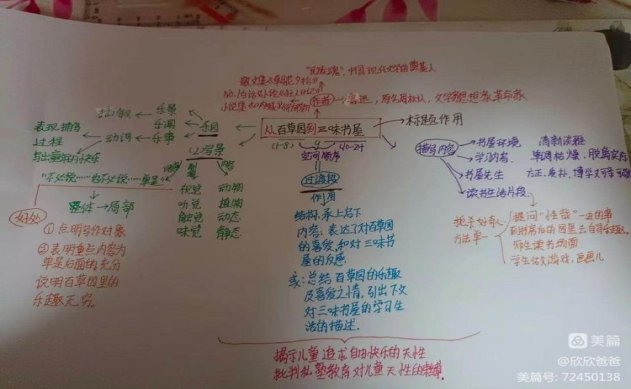 "民族魂",中国现代文学的奠基人
散文集《朝花夕拾》
作者
鲁迅,原名周树人,文学家思想家革命家
从百草园到三味书屋
标题作用
(1-8)
空间顺序
乐园
乐景
乐闻
乐事
动词
表现捕鸟
过程
写出童年的快乐
"不必说……也不必说……单是"
整体→局部
好处
①点明写作对象
②表明重点内容为
单是后面的,充分
说明百草园里的
乐趣无穷
写景
视觉
听觉
触觉
味觉
动物
植物
动态
静态
过渡段
作用
结构:承上启下
内容:表达了对百草园
的喜爱,和对三味书
屋的反感
或:总结百草园的乐趣
及喜爱之情,引出下文
对三味书屋的学习生
活的描述。
描写内容
书屋环境
清新淡雅
学习内容
单调枯燥,脱离实际
书屋先生
方正、质朴、博学
读书生活片段
提问"怪哉"一虫的事
师生读书的场面
学生做游戏,画画儿
揭示儿童追求自由快乐的天性
批判私塾教育对儿童天性的
美篇
@欣欣爸爸
美篇号: 72450138